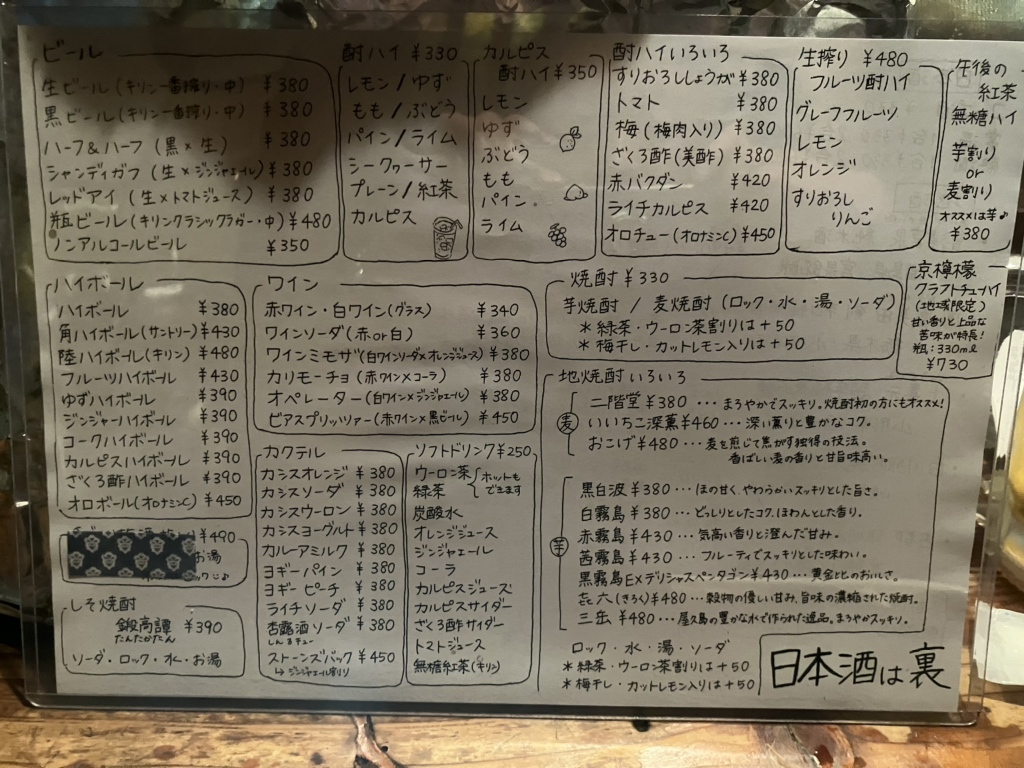 ビール
生ビール(キリン一番搾り・中) ¥380
黒ビール(キリン一番搾り・中) ¥380
ハーフ&ハーフ(黒×生) ¥380
シャンディガフ(生×ジンジャエール) ¥380
レッドアイ(生×トマトジュース) ¥380
瓶ビール(キリンクラシックラガー・中) ¥480
ノンアルコールビール ¥350
酎ハイ ¥330
レモン/ゆず
もも/ぶどう
パイン/ライム
シークヮーサー
プレーン/紅茶
カルピス
カルピス
酎ハイ¥350
レモン
ゆず
ぶどう
もも
パイン
ライム
酎ハイいろいろ
すりおろししょうが¥380
トマト ¥380
梅(梅肉入り) ¥380
ざくろ酢(美酢) ¥380
赤バクダン ¥420
ライチカルピス ¥420
オロチュー(オロナミンC) ¥450
生搾り ¥480
フルーツ酎ハイ
グレーフフルーツ
レモン
オレンジ
すりおろし
りんご
午後の
紅茶
無糖ハイ
芋割り
or
麦割り
オススメは芋♪
¥380
ハイボール
ハイボール ¥380
角ハイボール(サントリー) ¥430
陸ハイボール(キリン) ¥480
フルーツハイボール ¥430
ゆずハイボール ¥390
ジンジャーハイボール ¥390
コークハイボール ¥390
カルピスハイボール ¥390
ざくろ酢ハイボール ¥390
オロボール(オロナミンC) ¥450
ワイン
赤ワイン・白ワイン(グラス) ¥340
ワインソーダ(赤or白) ¥360
ワインミモザ(白ワインソーダ×オレンジジュース) ¥380
カリモーチョ(赤ワイン×コーラ) ¥380
オペレーター(白ワイン×ジンジャエール) ¥380
ビアスプリッツァー(赤ワイン×黒ビール) ¥450
焼酎 ¥330
芋焼酎 / 麦焼酎(ロック・水・湯・ソーダ)
*緑茶・ウーロン茶割りは+50
*梅干し・カットレモン入りは+50
京檸檬
クラフトチューハイ
(地域限定)
甘い香りと上品な
苦味が特長!
瓶:330ml
¥730
¥490
お湯
しそ焼酎
鍛高譚 ¥390
たんたかたん
ソーダ・ロック・水・お湯
カクテル
カシスオレンジ ¥380
カシスソーダ ¥380
カシスウーロン ¥380
カシスヨーグルト ¥380
カルーアミルク ¥380
ヨギーパイン ¥380
ヨギーピーチ ¥380
ライチソーダ ¥380
杏露酒ソーダ ¥380
しんるチュー
ストーンズバック ¥450
↳ジンジャエール割り
ソフトドリンク¥250
ウーロン茶
緑茶
ホットも
できます
炭酸水
オレンジジュース
ジンジャエール
コーラ
カルピスジュース
カルピスサイダー
ざくろ酢サイダー
トマトジュース
無糖紅茶(キリン)
地焼酎いろいろ
麦
二階堂 ¥380 … まろやかでスッキリ。焼酎初の方にもオススメ!
いいちこ深薫 ¥460 … 深い薫りと豊かなコク。
おこげ ¥480 … 麦を煎じて焦がす独得の技法。
香ばしい麦の香りと甘旨味高い。
芋
黒白波 ¥380 … ほの甘く、やわらかいスッキリとした旨さ。
白霧島 ¥380 … どっしりとしたコク、ほわんとした香り。
赤霧島 ¥430 … 気高い香りと澄んだ甘み。
茜霧島 ¥430 … フルーティでスッキリとした味わい。
黒霧島EXデリシャスペンタゴン ¥430 … 黄金ととのおいしさ。
㐂六(きろく) ¥480 … 穀物の優しい甘み、旨味の濃縮された焼酎。
三岳 ¥480 … 屋久島の豊かな水で作られた逸品。まろやかスッキリ。
ロック・水・湯・ソーダ
*緑茶・ウーロン茶割りは+50
*梅干し・カットレモン入りは+50
日本酒は裏